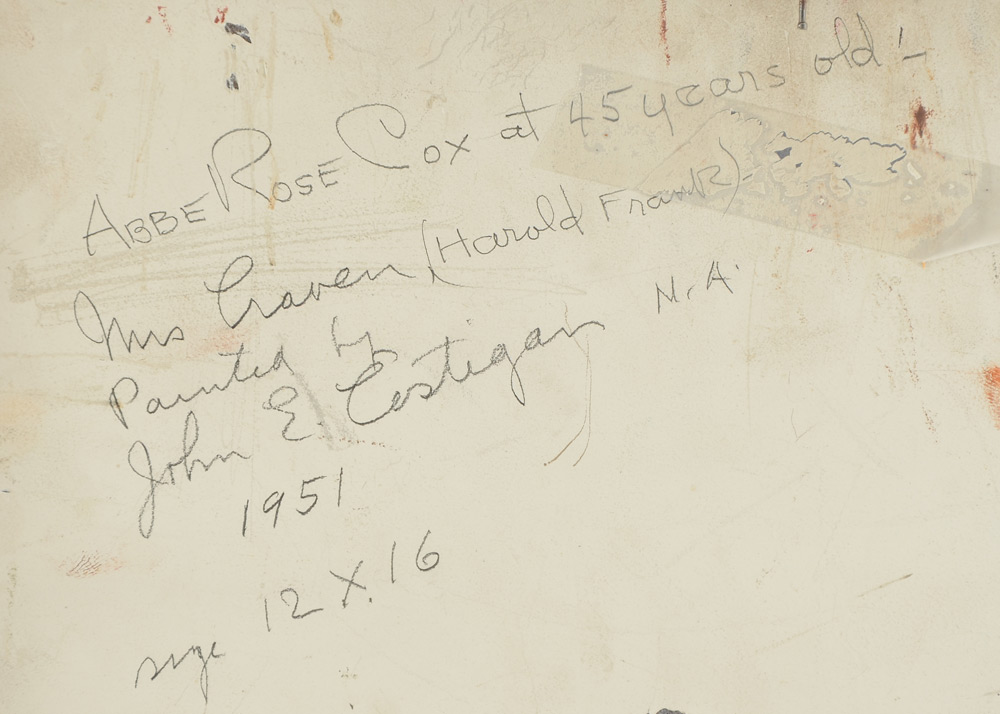 ABBE ROSE COX at 45 years old -
Mrs Craven (Harold Frank)
Painted by
John E. Costigan N.A.
1951
size 12 X 16